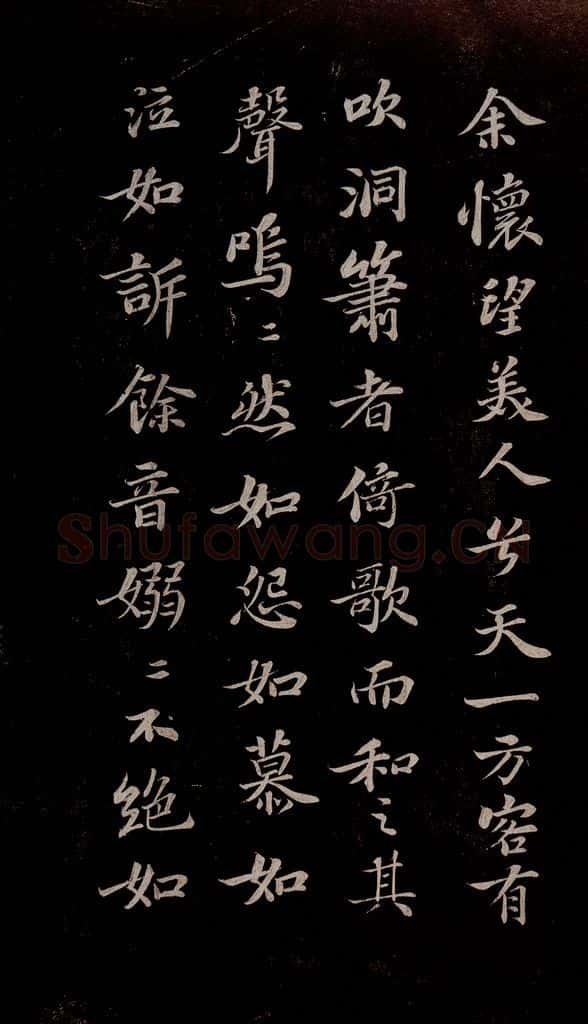 余懷望美人兮天一方客有
吹洞簫者倚歌而和之其
聲嗚〻然如怨如慕如
泣如訴餘音嫋〻不絶如
Shufawang.Cn